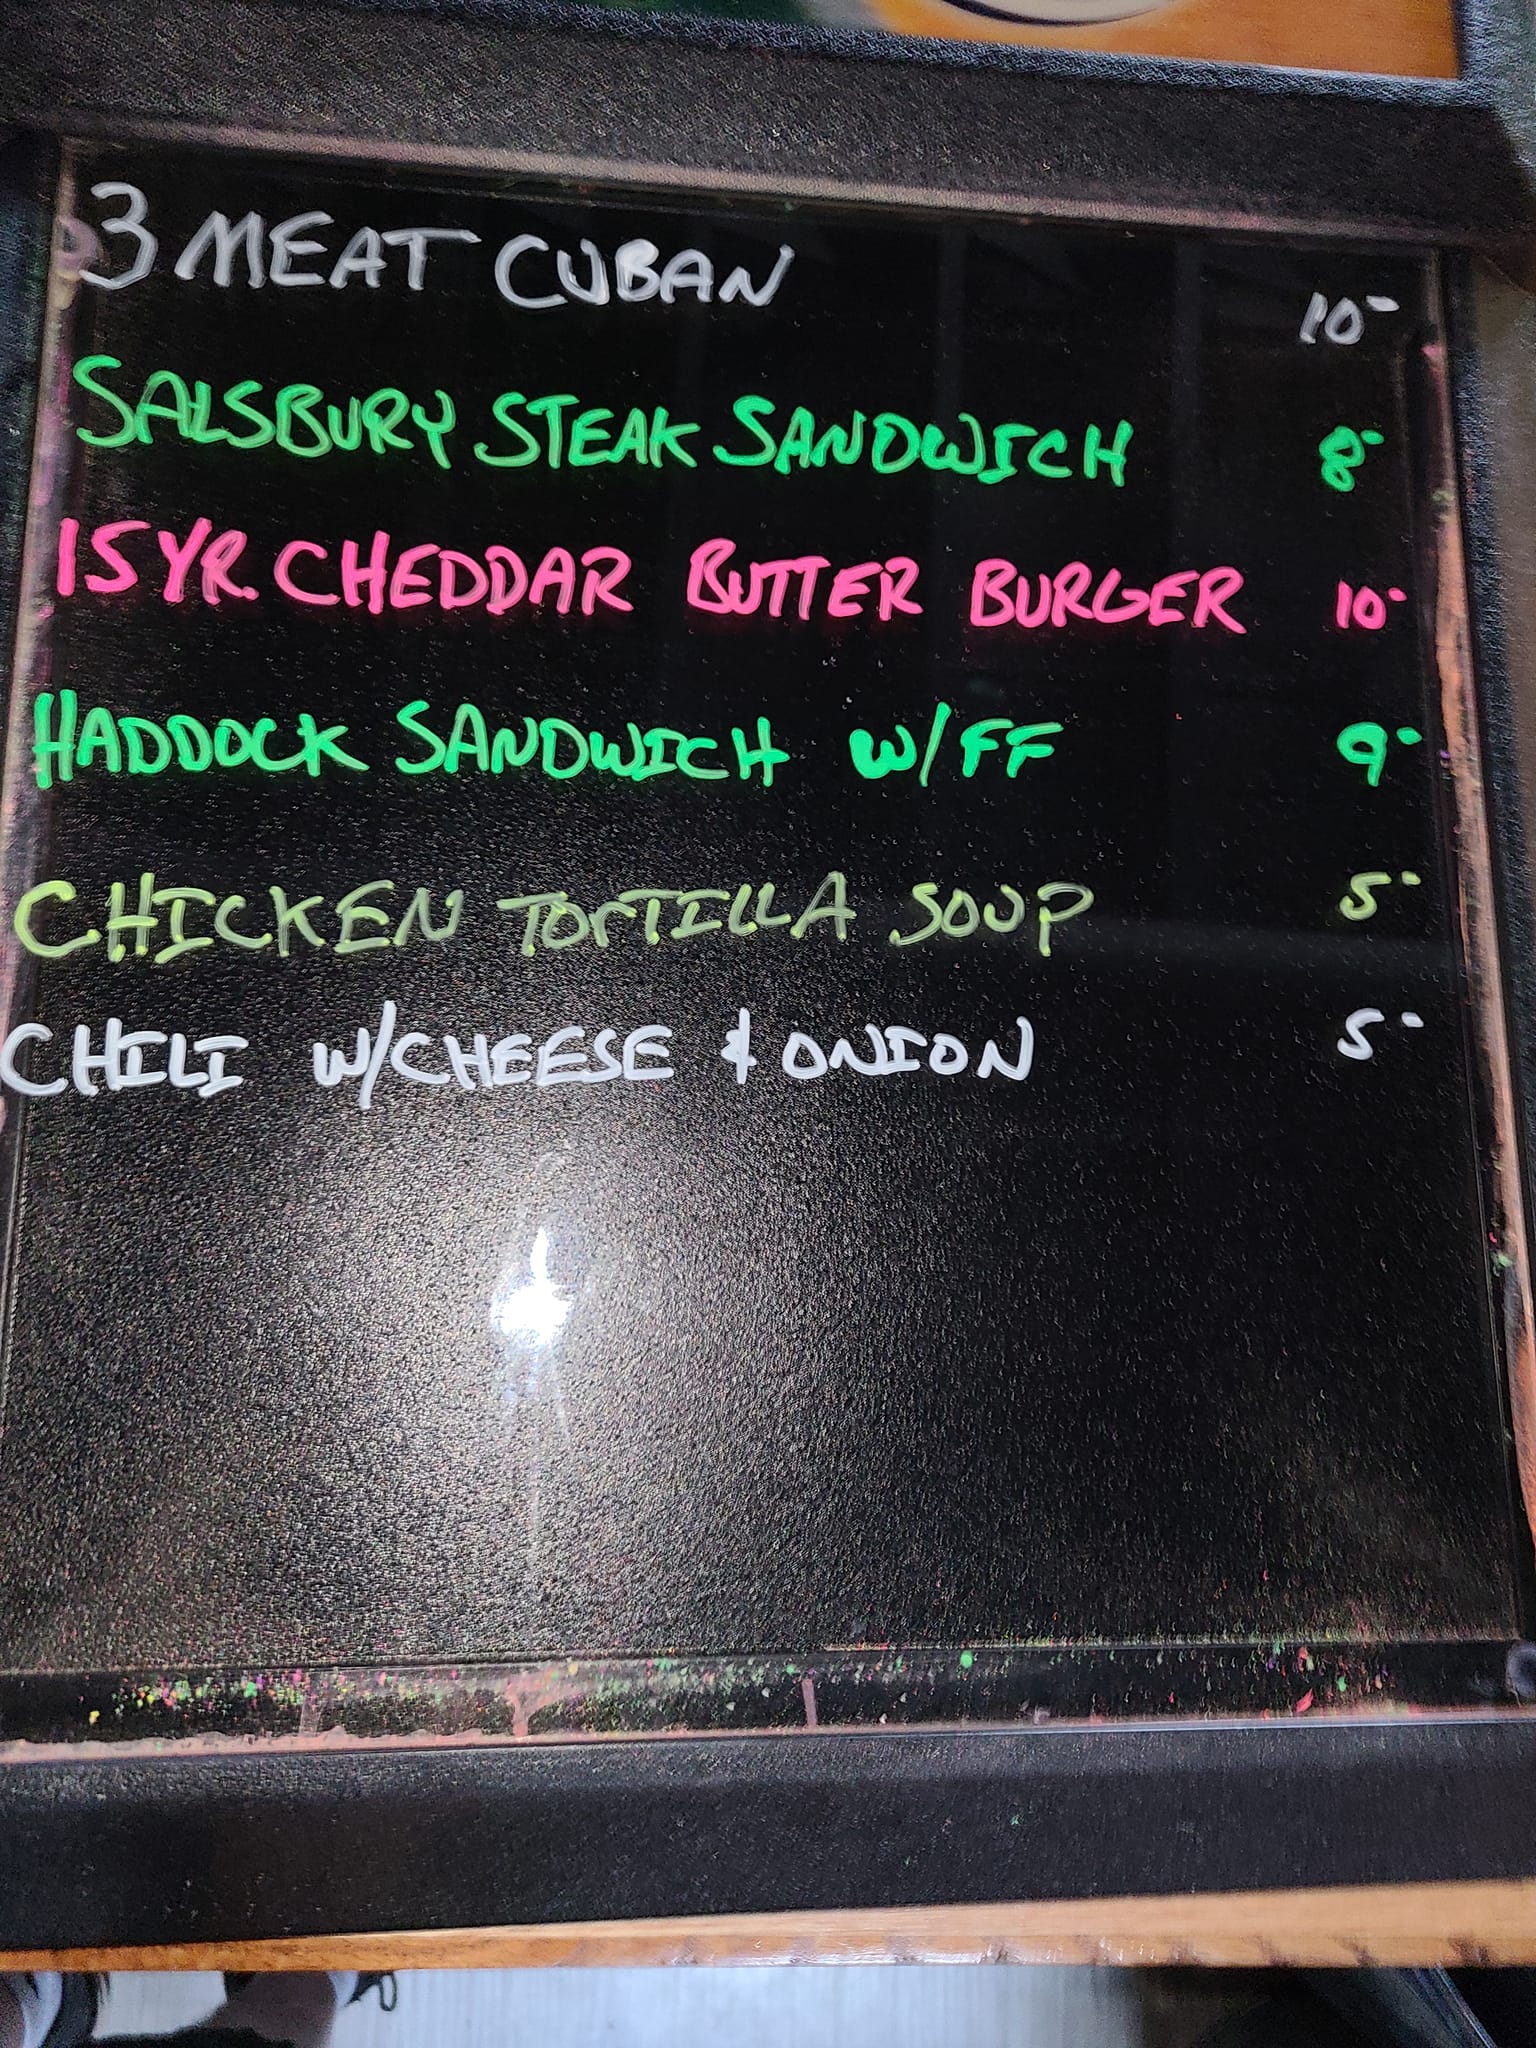 3 MEAT CUBAN 10-
SALSBURY STEAK SANDWICH 8-
15 YR. CHEDDAR BUTTER BURGER 10-
HADDOCK SANDWICH W/FF 9-
CHICKEN TORTILLA SOUP 5-
CHILI W/CHEESE & ONION 5-